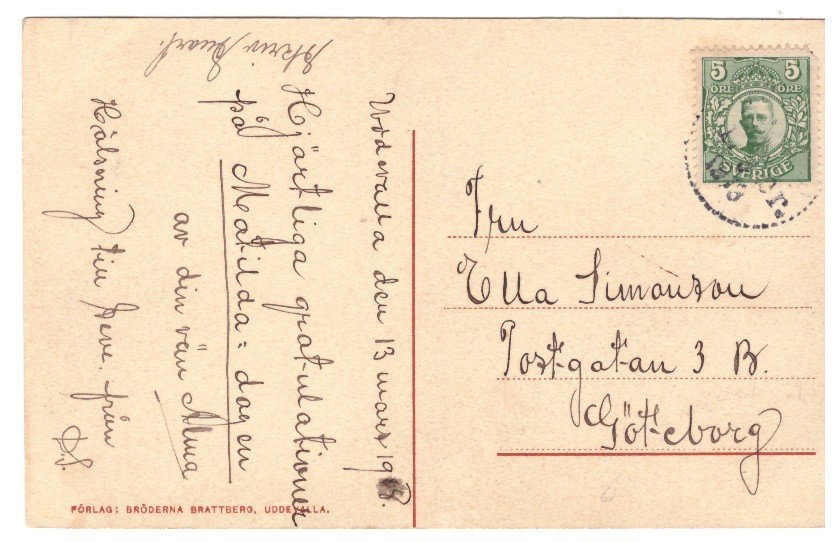 Skriv snart.
Uddevalla den 13 mars 19
Hjärtliga gratulationer
på Matilda=dagen
av din vän Alma
Hälsning till
från
D.S.
5 5
ÖRE ÖRE
SVERIGE
Fru
Ella Simonson
Postgatan 3 B.
Göteborg
FÖRLAG: BRÖDERNA BRATTBERG, UDDEVALLA.